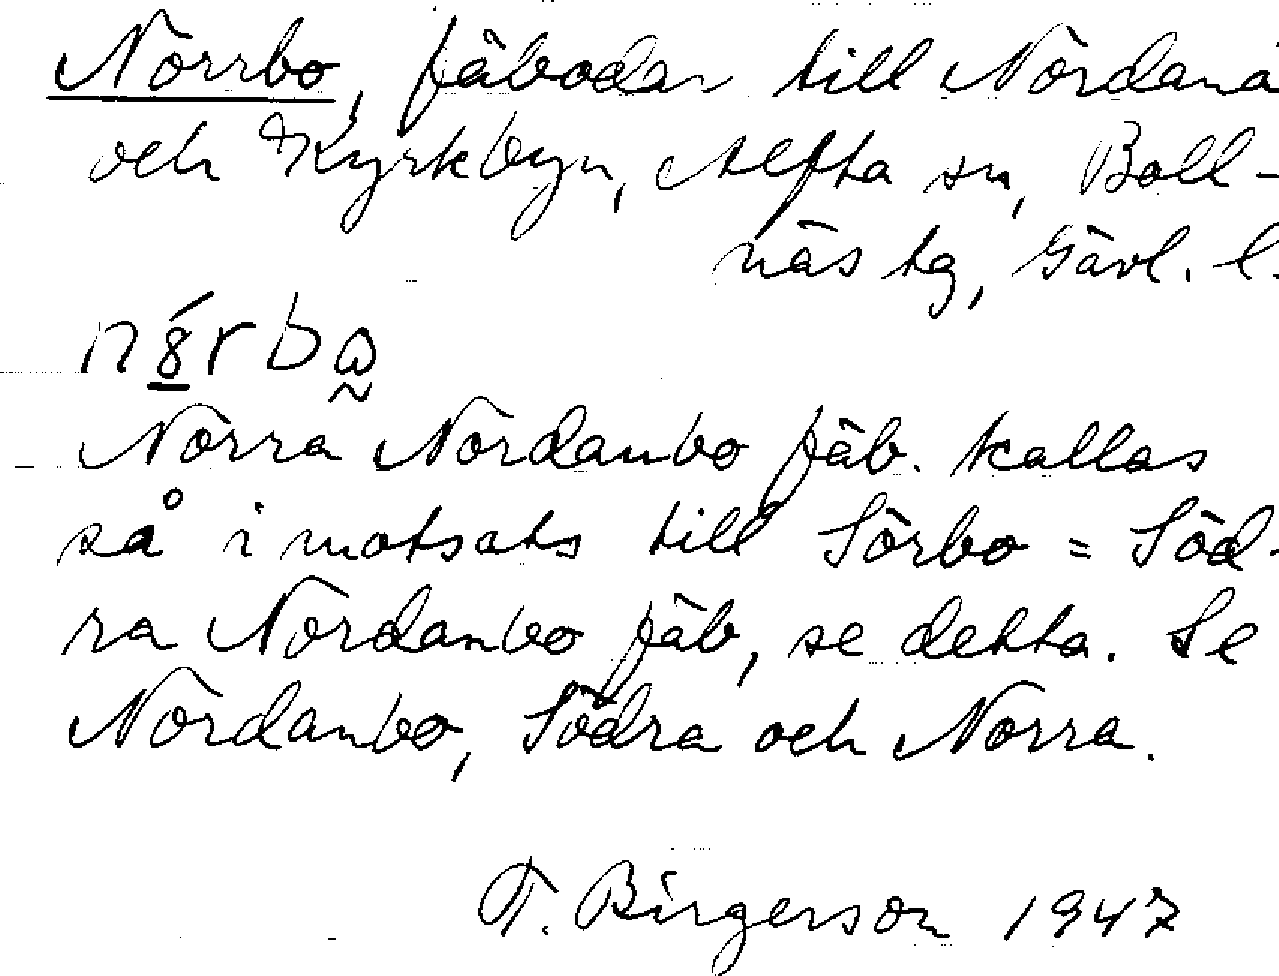 Norrbo, fäbodar till Nordanå
och Kyrkbyn, Alfta sn, Boll-
näs tg, Gävl. l.
Norra Nordanbo fäb. kallas
så i motsats till Sörbo = Söd-
ra Nordanbo fäb, se detta. Se
Nordanbo, Södra och Norra.
T. Birgerson 1947